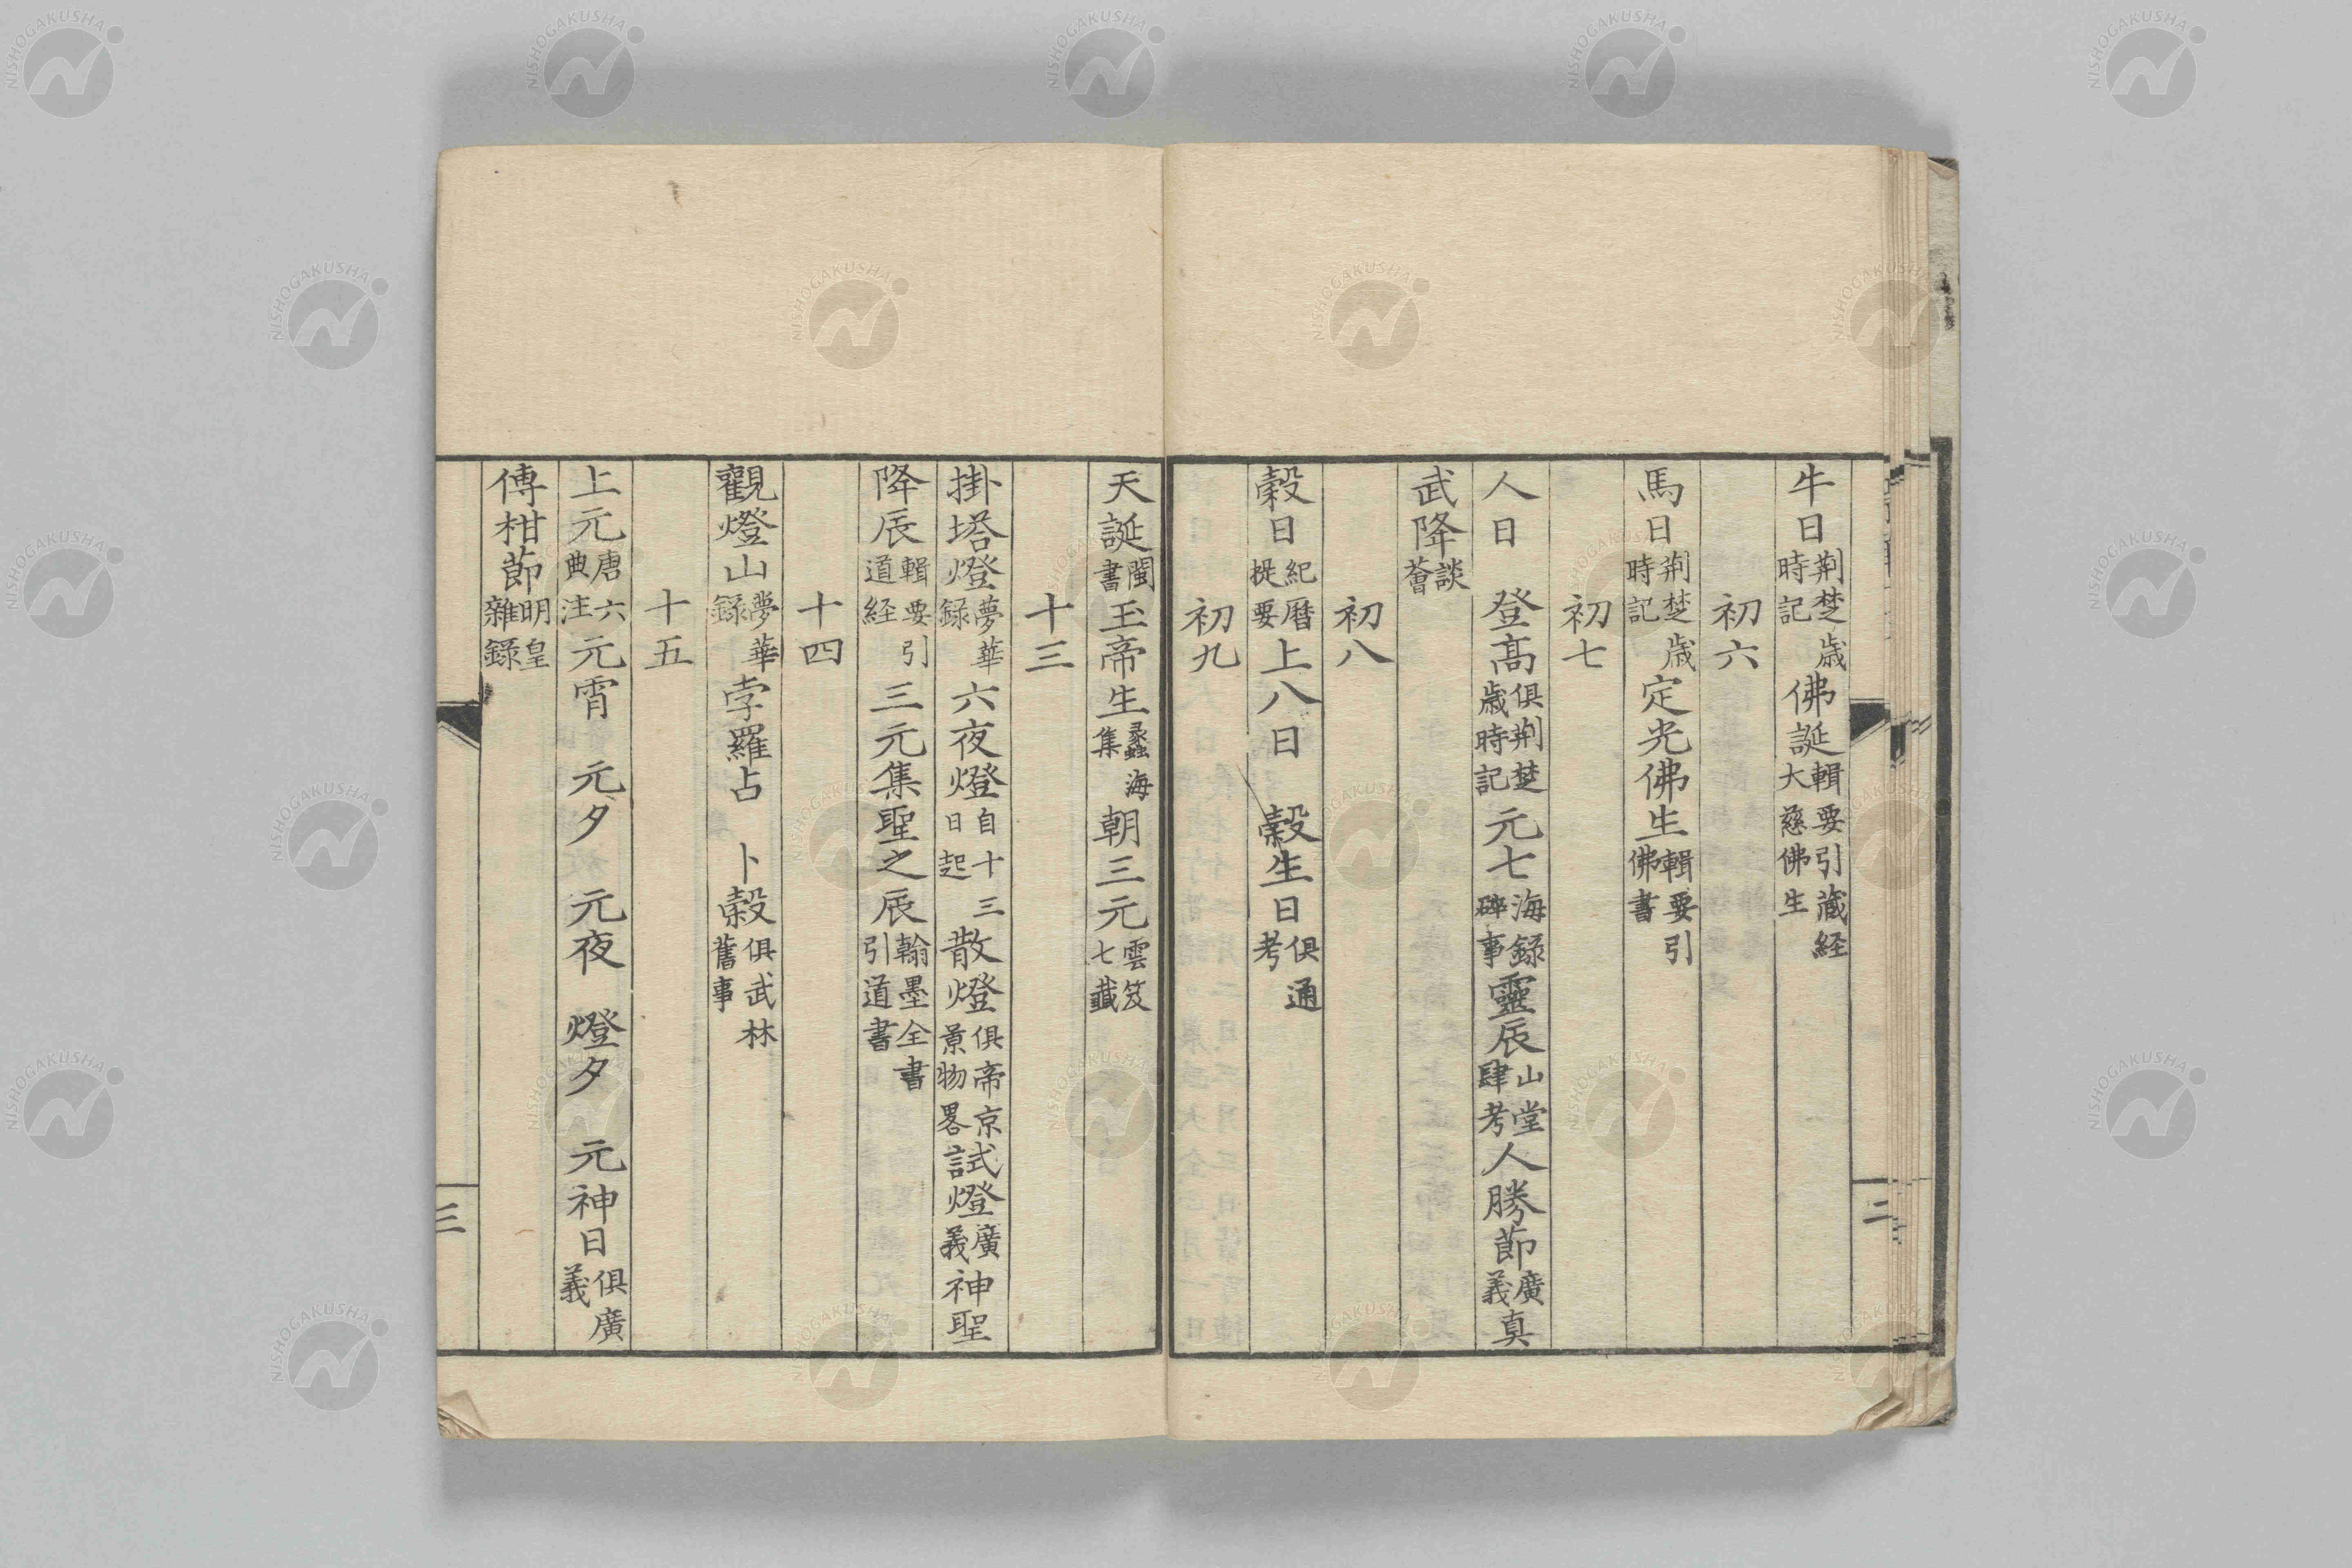 牛日荆楚歳時記佛誕輯要引蔵経大慈佛生
初六
馬日荆楚歳時記定光佛生輯要引佛書
初七
人日 登髙俱荆楚歳時記元七海録碎事靈辰山堂肆考人勝節廣義真
武降談薈
初八
榖日紀曆提要上八日 榖生日俱通考
初九
天誕閩書玉帝生蠡海集朝三元雲笈七籤
十三
掛塔燈夢華録六夜燈自十三日起散燈俱帝京景物畧試燈廣義神聖
降辰輯要引道経三元集聖之辰翰墨全書引道書
十四
觀燈山夢華録孛羅占 卜榖俱武林舊事
十五
上元唐六典注元宵 元夕 元夜 燈夕 元神日俱廣義
傳柑節明皇雜録
二
三
NISHOGAKUSHA